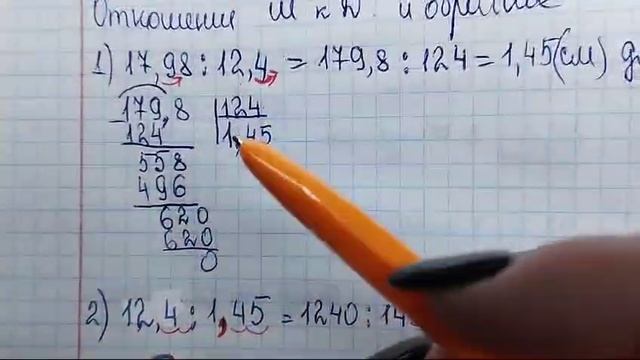 Отношения и обратное
1) 17,98 : 12,4 = 179,8 : 124 = 1,45(см)
179,8 | 124
124 1,45
558
496
620
620
0
2) 12,4 : 1,45 = 1240 : 14